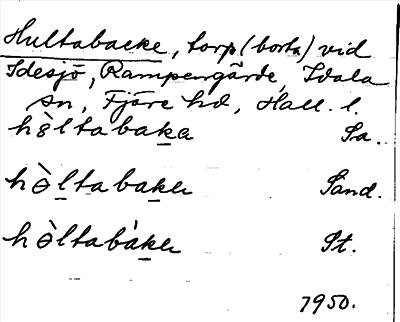 Hultabacke, torp (borta) vid
Idesjö, Rampengärde, Idala
sn, Fjäre hd, Hall. l.
hòltabaka Sa.
hòltabakɐ Sand.
hòltabàkɐ St.
1950.